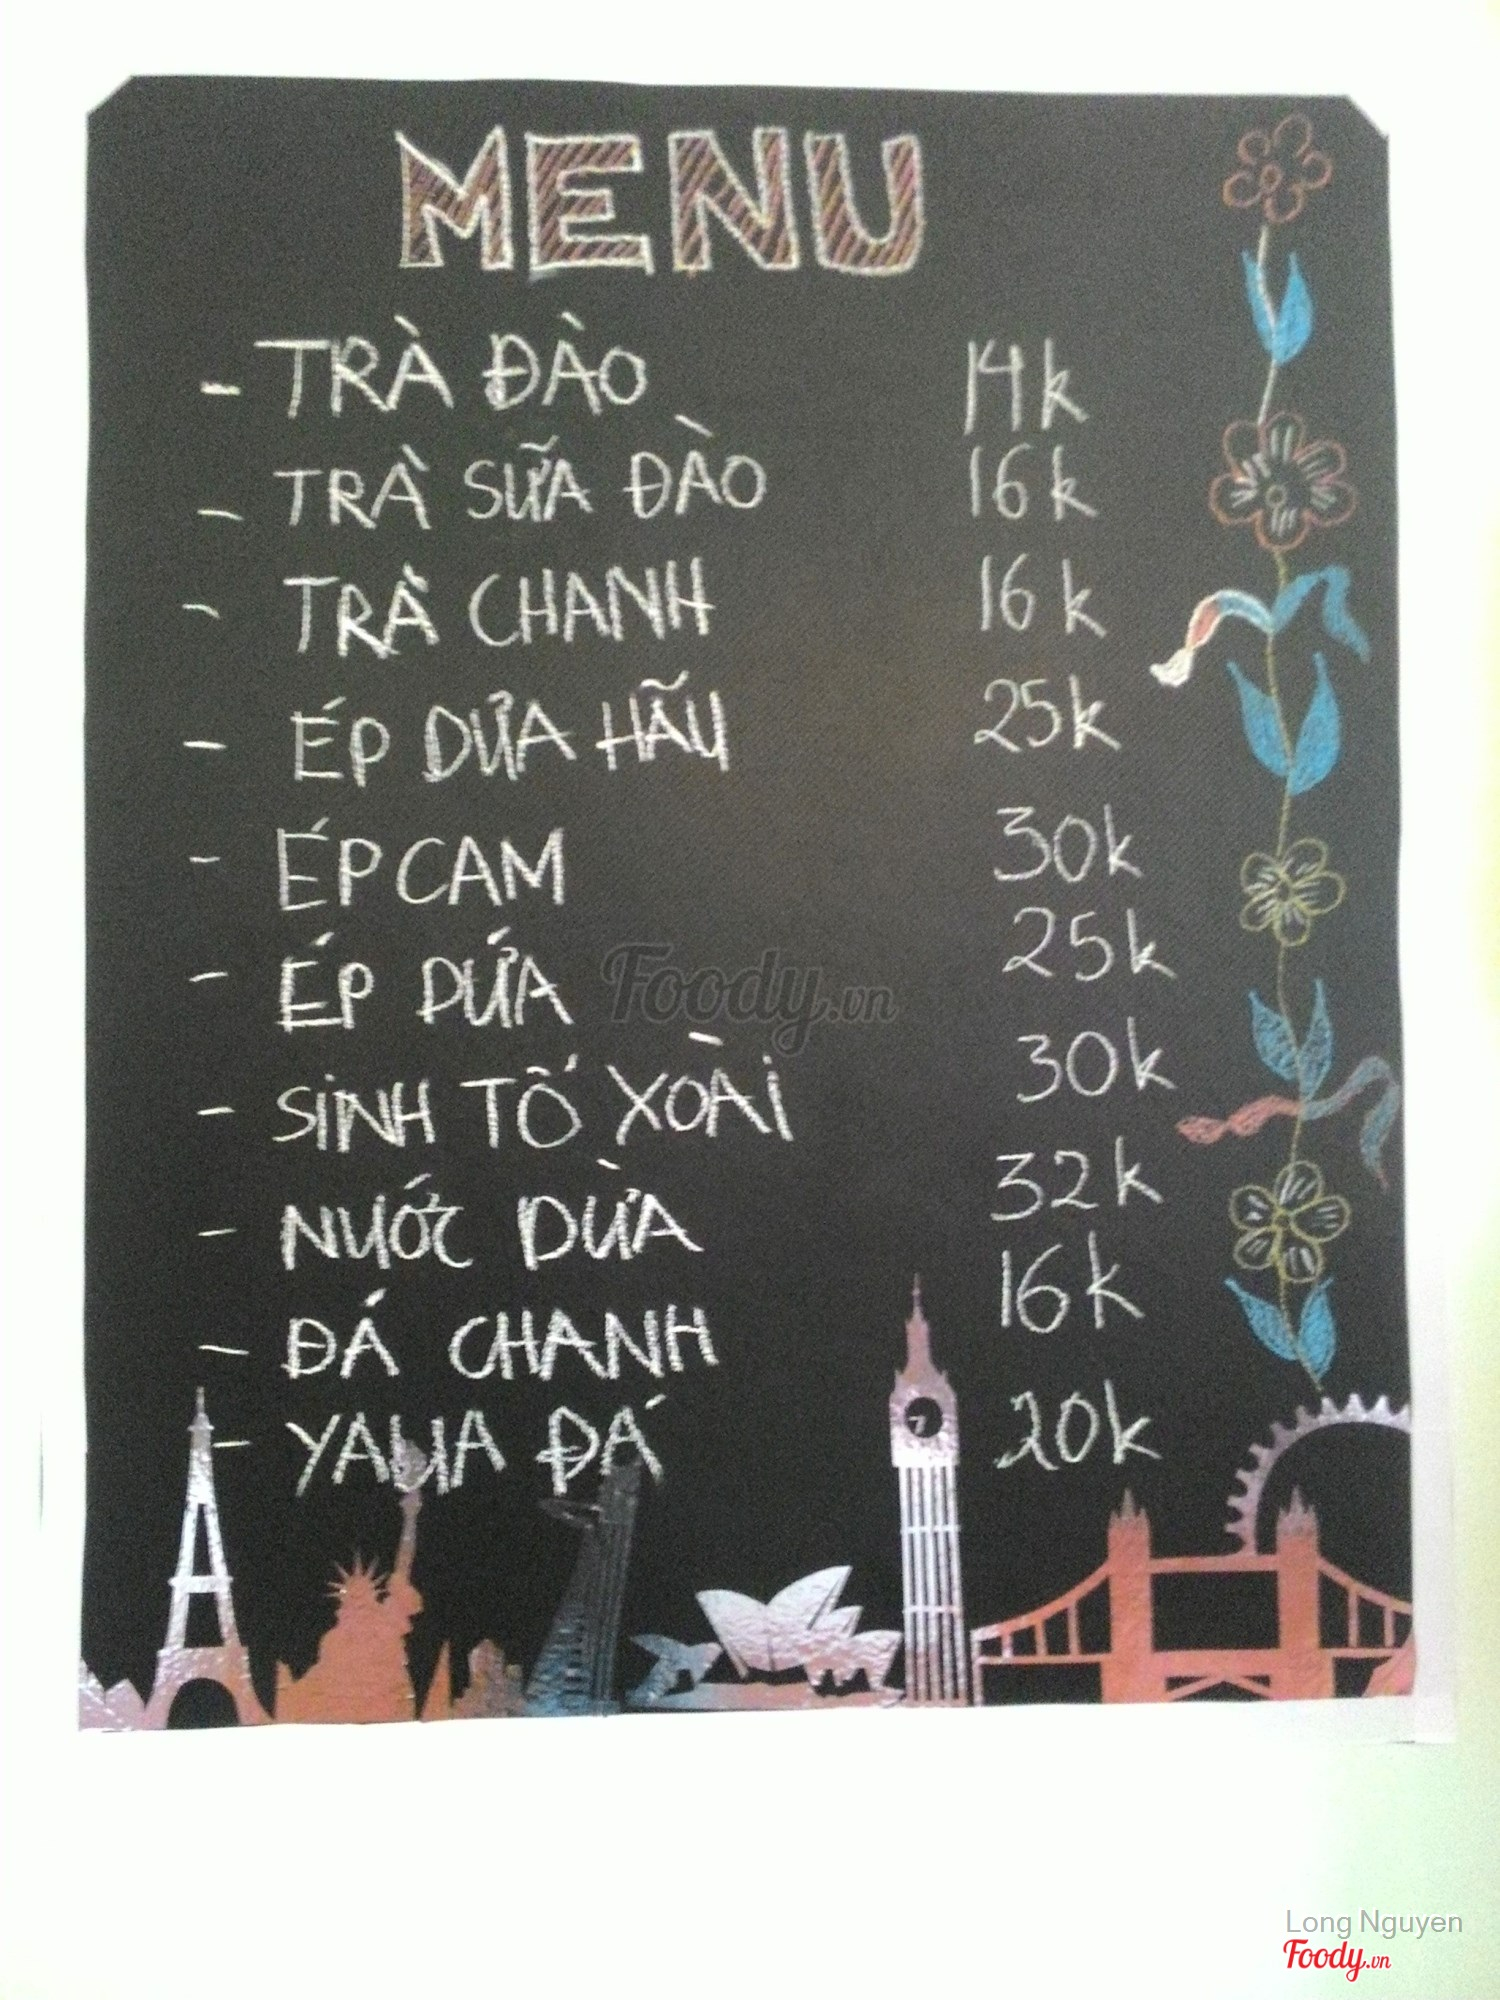 MENU
- TRÀ ĐÀO 14k
- TRÀ SỮA ĐÀO 16k
- TRÀ CHANH 16k
- ÉP DƯA HẤU 25k
- ÉP CAM 30k
- ÉP DỨA 25k
- SINH TỐ XOÀI 30k
- NƯỚC DỪA 32k
- ĐÁ CHANH 16k
- YAUA ĐÁ 20k
Foody.vn
Long Nguyen
Foody.vn